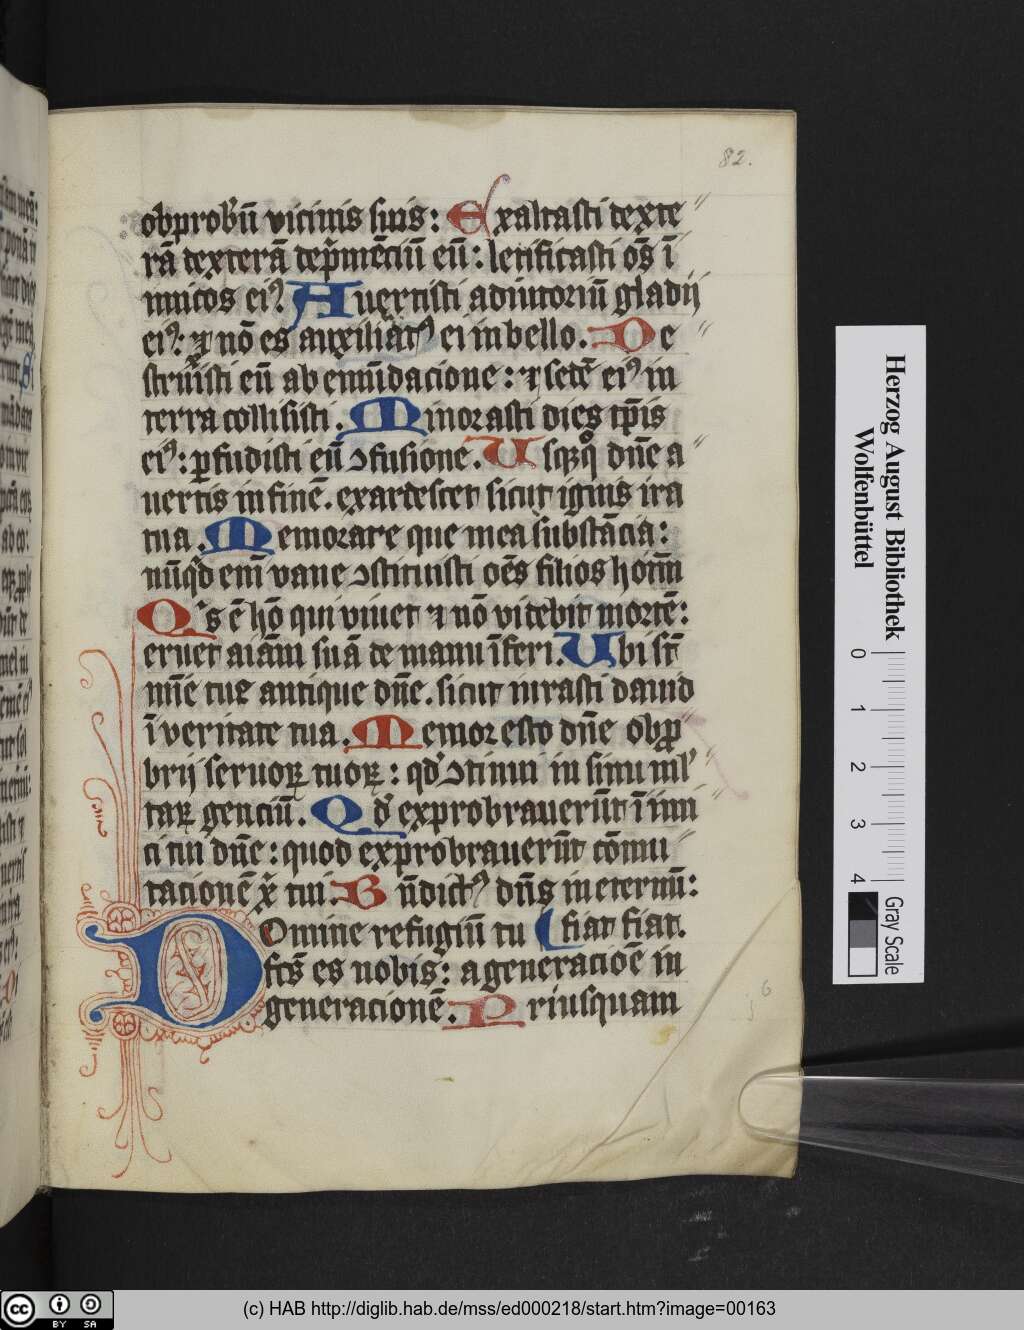 82.
obprobriū vicinis suis: Exaltasti dexte
rā dexterā dep̄mēciū eū: letificasti oēs ī
imicos eiꝰ. Auertisti adiutoriū gladij
eiꝰ: ⁊ nō es auxiliatꝰ ei in bello. De
struxisti eū ab emūdacione: ⁊ sedē eiꝰ in
terra collisisti. Minorasti dies tp̄is
eiꝰ: ꝑfudisti eū ↄfusione. Usq̄q̊ dn̄e a
uertis in finē. exardescet sicut ignis ira
tua. Memorare que mea substācia:
nūqͥd em̄ vane ↄstituisti oēs filios hoīm
Qͥs ē hō qui viuet ⁊ nō videbit mortē:
eruet aīam suā de manu īferi. Ubi st̄
mīe tue antique dn̄e. sicut iurasti dauid
ī veritate tua. Memor esto dn̄e obꝓ
brij seruoꝝ tuoꝝ: qd̓ ↄtinui in sinu ml̓
taꝝ genciū. Qd̓ exprobrauerūt īimi
ci tui dn̄e: quod exprobrauerūt cōmu
tacionē xp̄i tui. Bn̄dictꝰ dn̄s in eternū:
Domine refugiū tu fiat fiat.
fcs̄ es nobis: a generacioē in
generacionē. Priusquam
Herzog August Bibliothek
Wolfenbüttel
0 1 2 3 4
Gray Scale
cc BY SA
(c) HAB http://diglib.hab.de/mss/ed000218/start.htm?image=00163